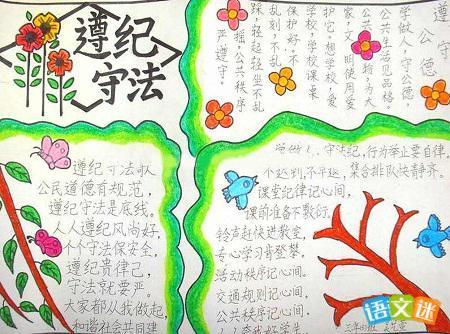 遵纪
守法
遵公守德
学做人,守公德,
公共生活见品格。
家,文明使用爱
护它。想学校,爱
学校,学校课桌
保护好。不
乱刻,不乱
踩,轻起轻坐不乱
摇,公共秩序
严遵守。
遵纪守法歌
公民道德有规范,
遵纪守法是底线。
人人遵纪风尚好,
个个守法保安全,
遵纪贵律己,
守法就要严。
大家都从我做起,
和谐社会共同建
学做人,守法纪,行为举止要自律。
不迟到,不早退,集合排队快静齐。
课堂纪律记心间,
课前准备不敷衍。
铃声赶快进教室,
专心学习肯登攀。
活动秩序记心间,
交通规则记心间,
公共秩序记心间,
语文迷